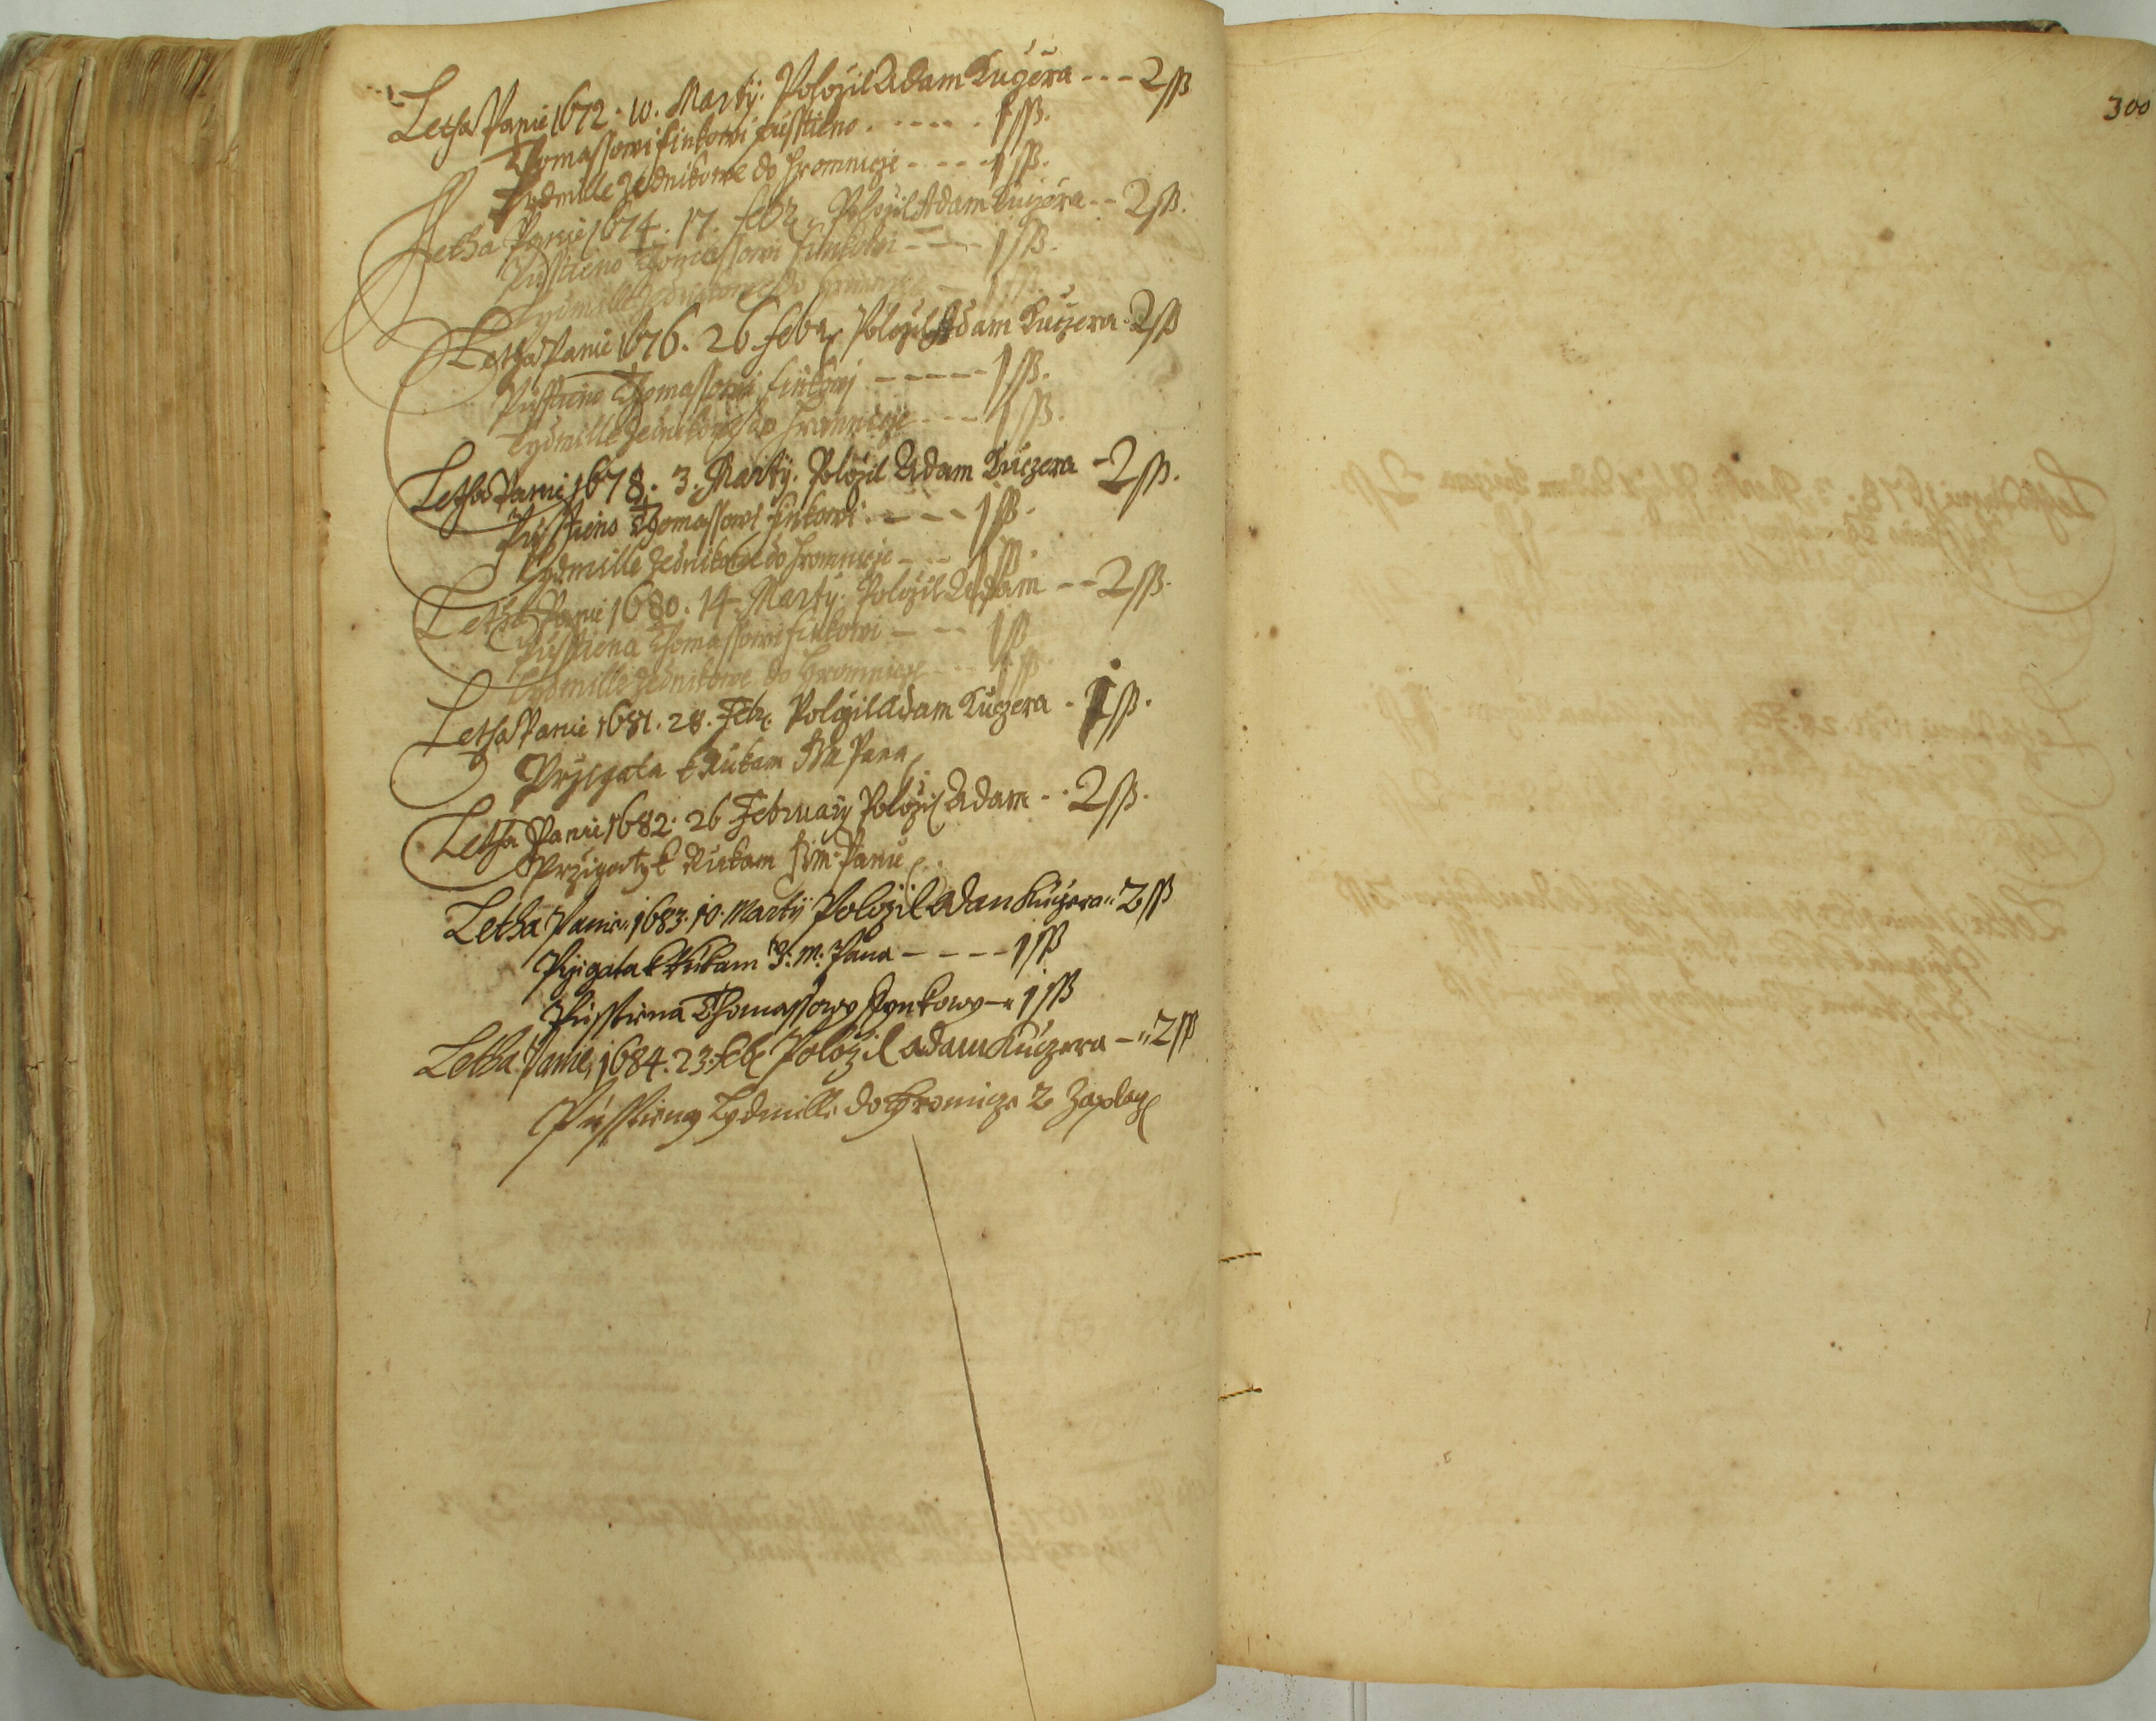 Letha Panie 1672. 10. Marty. Položil Adam Kučera - - - 2 ß
Thomassowi Finkowi pusstieno . . . . . . 1 ß.
Lydmille Zednikowe do Hromnicze - - - - 1 ß.
Letha Panie 1674. 17. Febr. Položil Adam Kučera - - 2 ß.
Pusstieno Thomassowi Finkowi - - - 1 ß.
Lydmille Zednikowe do Hromnicze - 1 ß.
Letha Panie 1676. 26. Febr. Položil Adam Kuczera - 2 ß
Pusstieno Thomassowi Finkowj - - - - - 1 ß.
Lydmille Zednikowe do Hromnicze - - - 1 ß.
Letha Panie 1678. 3. Marty. Položil Adam Kuczera - 2 ß.
Pusstieno Thomassowi Finkowi . - - - - 1 ß.
Lydmille Zednikowe do Hromnicze - - 1 ß.
Letha Panie 1680. 14. Marty. Položil Adam - - 2 ß.
Pusstiena Thomassowi Finkowi - - - 1 ß
Lydmille Zednikowe do Hromnicze - - - 1 ß.
Letha Panie 1681. 28. Febr. Položil Adam Kučzera - 1 ß.
Przigata k Rukam Pana
Letha Panie 1682. 26 February Položil Adam - - 2 ß.
Przigaty k Rukam Panu
Letha Panie 1683. 10. Marty Položil Adam Kučzera 2 ß
Przigata k Rukam J: M: Pana - - - - 1 ß
Pusstiena Thomassowy Fynkowy - 1 ß
Letha Panie 1684. 23. Feb. Položil Adam Kučzera - 2 ß
Pusstieny Lydmille do Hromicze 2
300